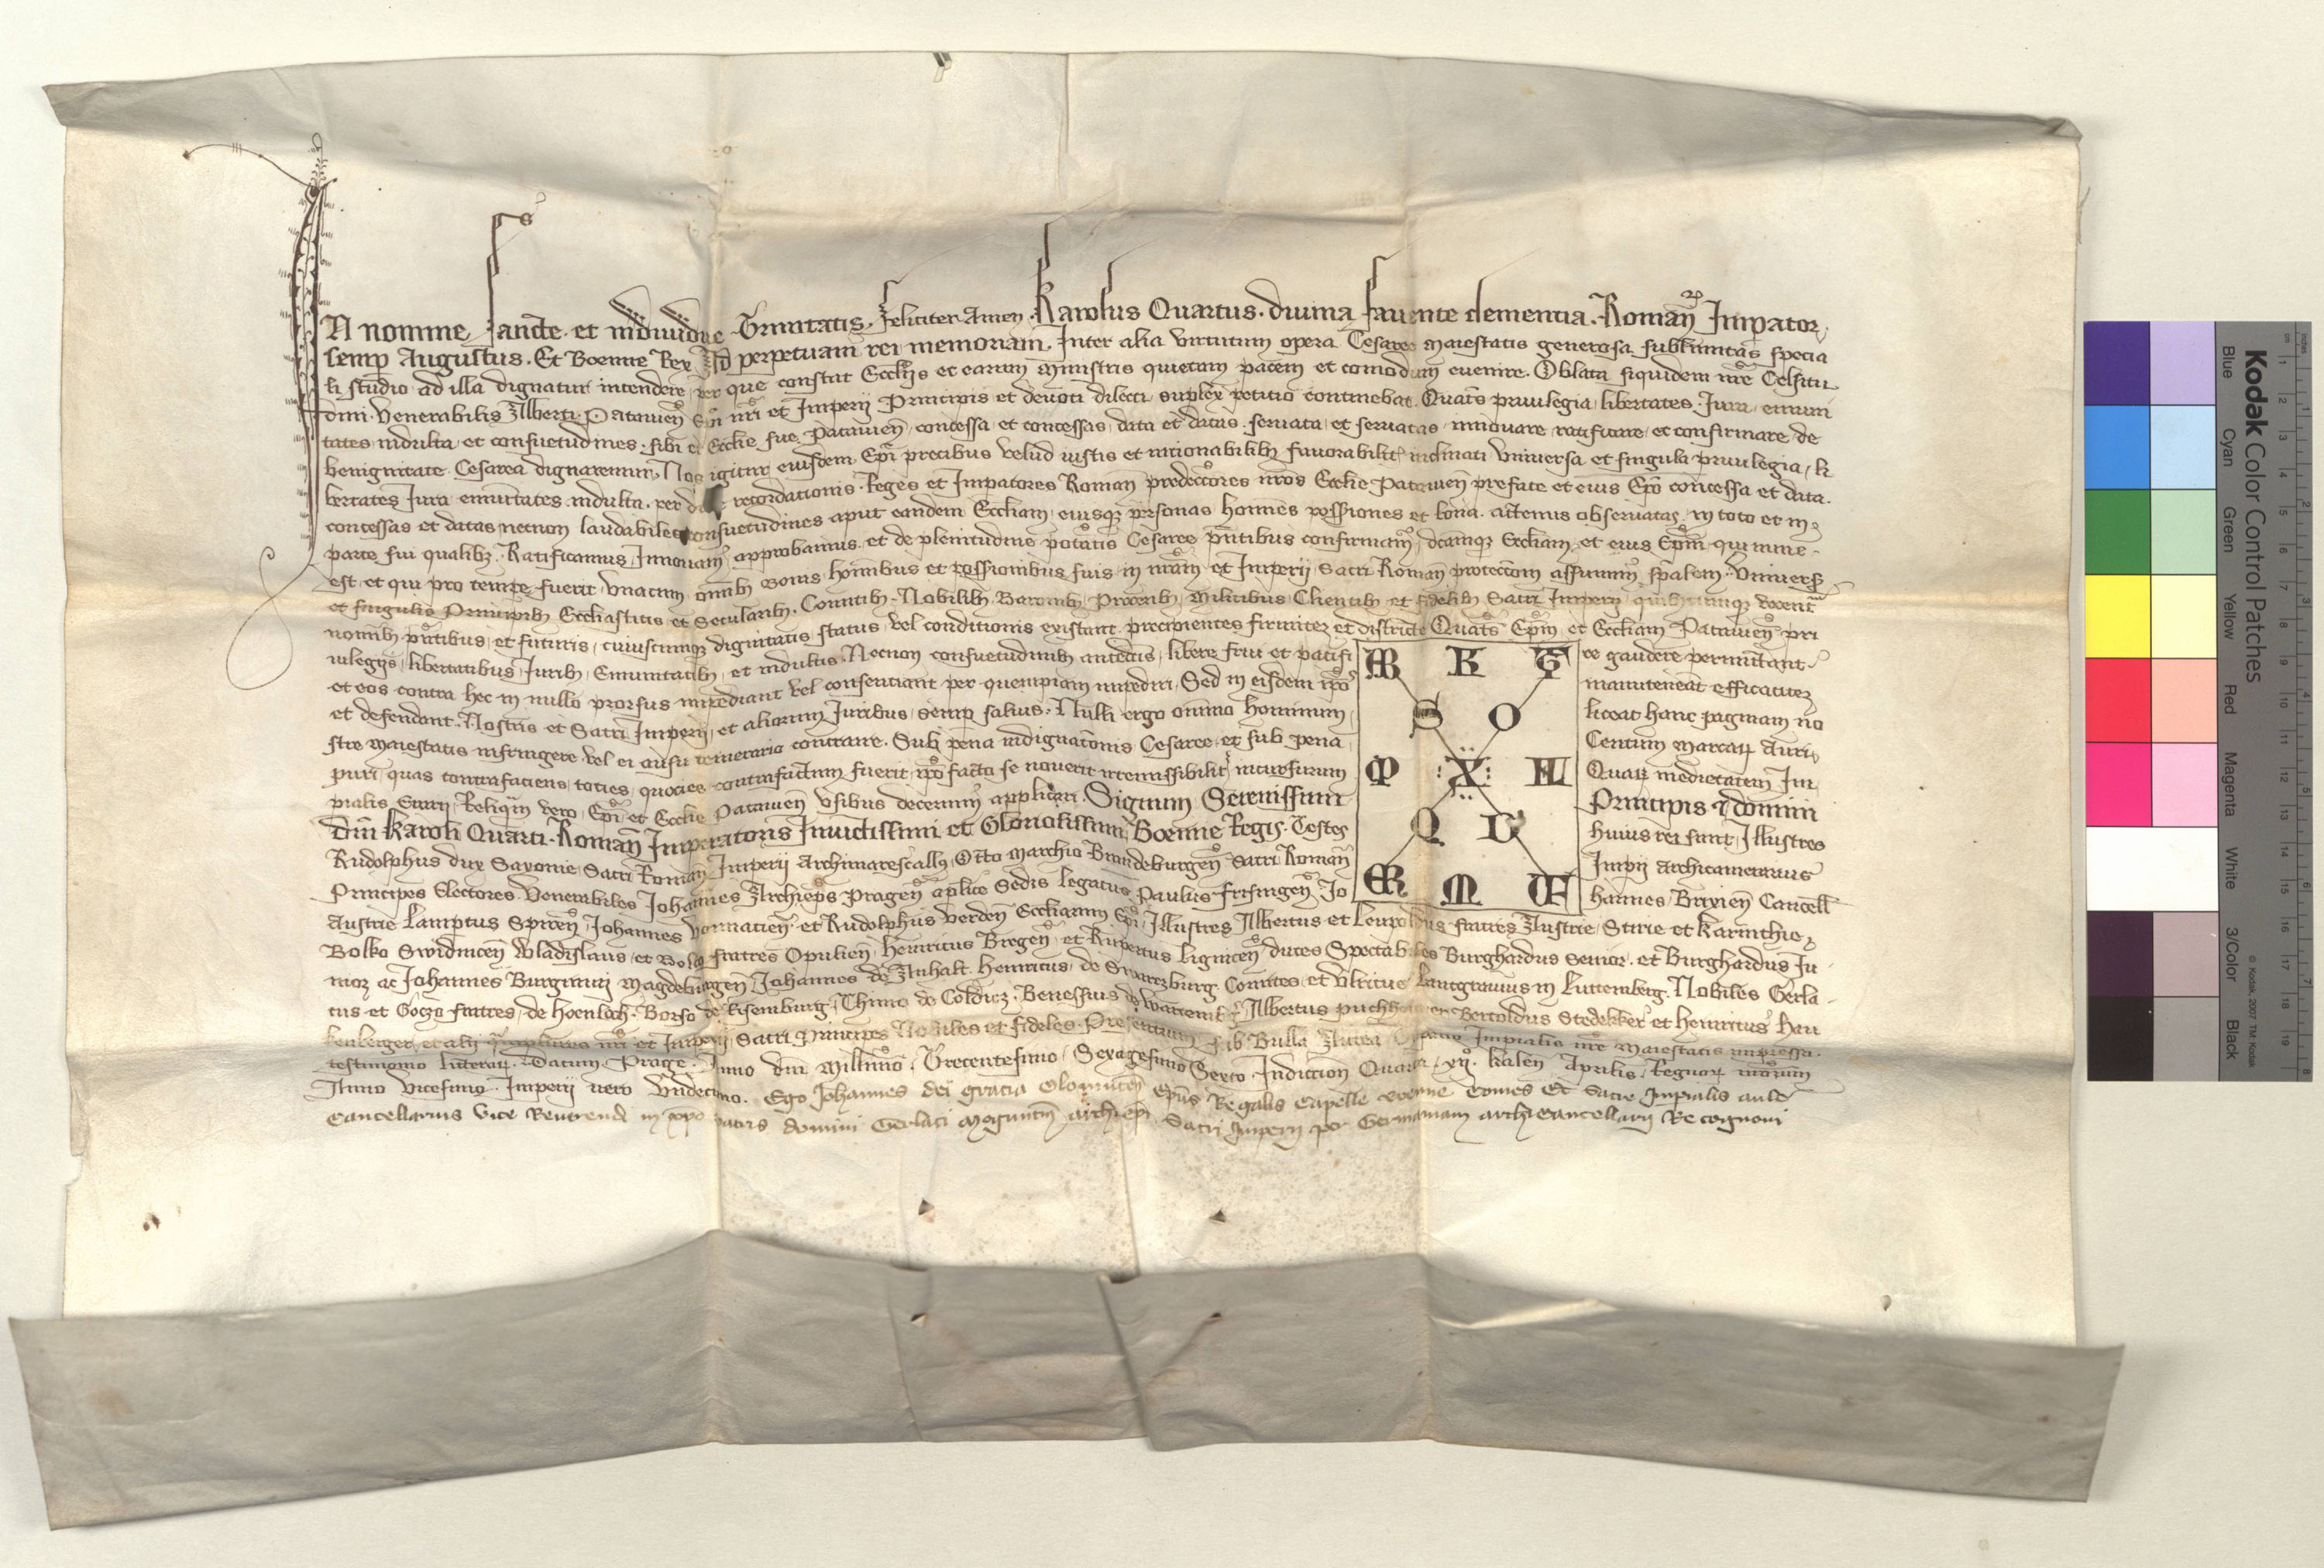 In nomine sancte et individue Trinitatis, Feliciter Amen. Karolus Quartus. divina favente clementia. Romanorum Impator,
semp Augustus. Et Boemie Rex Ad perpetuam rei memoriam. Inter alia virtutum opera Cesaree maiestatis generosa sublimitas specia
li studio ad illa dignatur intendere, per que constat Ecclijs et earum ministris quietam pacem et comodum evenire. Oblata siquidem nre Celsitu
dini. Venerabilis Alberti. Patavien Epi nri et Imperii Principis et devoti dilecti. suplex petitio continebat. Quats privilegia, libertates. Jura. emuni
tates indulta et consuetudines. sibi et Ecclie sue Patavien, concessa et concessas, data et datas. servata, et servatas innovare ratificare, et confirmare de
benignitate Cesarea dignaremur. Nos igitur eiusdem Epi precibus velud iustis et racionabilibz favorabilit inclinati Universa et singula privilegia, li
bertates Jura emunitates. indulta. per recordationis. Reges et Impatores Roman predectores nros Ecclie Patavien prefate et eius Epo concessa et data.
concessas et datas, necnon laudabiles consuetudines aput eandem Eccliam, eiusqz personas homines possiones et bona. actenus observatas, in toto et in
parte sui qualibz. Ratificamus, Innovam approbamus. et de plenitudine ptatis Cesaree pntibus confirmam, dcamqz Eccliam, et eius Epm. qui nunc
est, et qui pro tempe fuerit. unacum omnibz bonis hominibus et possionibus suis in nram et Imperii Sacri Roman protectom assumim spalem. Univers
et singulis Principibz Ecclasticis et Secularibz. Comitibz. Nobilibz. Baronibz, Procibz, Militibus Clientibz et fidelibz Sacri Imperii, quibuscumqz vocent
nominibz pntibus, et futuris, cuiuscumqz dignitatis status vel conditionis existant. precipientes firmitez et districte Quats Epm et Eccliam Patavien. pri
vilegijs, libertatibus, Juribz, Emunitatibz, et indultis. Necnon consuetudinibz antedcis, libere frui et pacifi ce gaudere permittant.
et eos contra hec in nullo prorsus impediant vel consentiant per quempiam impediri, Sed in eisdem ipos manuteneat efficacitez
et defendant. Nostris et Sacri Imperij, et aliorum Juribus, semp salvis. Nulli ergo omnino hominum, liceat hanc paginam no
stre maiestatis infringere vel ei ausu temerario contraire. Sub pena indignationis Cesaree et sub pena Centum marcarum Auri
puri, quas contrafaciens, tocies, quocies contrafactum fuerit, ipo facto se noverit irremissibilit incursurum Quarum medietatem Im
pialis Erarij, Reliquam vero, Epi et Ecclie Patavien usibus decernim applicari. Signum Serenissimi Principis et domini
dni Karoli Quarti. Roman Imperatoris Invictissimi et Gloriosissimi Boemie Regis. Testes huius rei sunt, Illustres
Rudolphus dux Saxonie, Sacri Roman Imperii Archimarescallus, Otto Marchio Brandeburgen Sacri Roman Impij Archicamerarius
Principes Electores. Venerabiles Johannes Archieps Pragen aplice Sedis legatus, Paulus Frisingen, Jo hannes, Brixien Cancell
Austrie Lamptus Spiren, Johannes Wormatien, et Rudolphus Verden Eccliarum Epi, Illustres Albertus et Leupoldus fratres Austrie, Stirie et Karinthie,
Bolko Swidnicen Wladislaus, et Bolco fratres Opulien, Henricus Bregen, et Rupertus Lignicen duces Spectabiles Burghardus Senior. et Burghardus Ju
nior ac Johannes Burgravij Magdeburgen, Johannes de Anhalt. Henricus, de Swarczburg. Comites, et Ulricus Lantgravius in Luttemberg. Nobiles Gerla
cus et Goczo fratres, de Hoenloch. Borso de Risemburg, Thimo de Coldicz. Benessius de Wartenberg Albertus puchheimer Bertoldus Stedekker et Henricus Hau
kenberger, et alij quamplures nri et Imperij, Sacri Principes Nobiles et fideles. Presentium sub Bulla Aurea tipario Impialis nre maiestatis impressa.
testimonio literarum. Datum Prage. Anno dni Millimo. Trecentesimo, Sexagesimo Sexto. Indiction Quarta, xij. kalen Aprilis, Regnorum nrorum
Anno Vicesimo. Imperii vero Undecimo. Ego Johannes dei gracia Olomucen Epus Regalis Capelle Boemie Comes et Sacre Impialis aule
Cancellarius vice Reverendi in xpo patris domini Gerlaci Moguntin archiepi Sacri Imperii per Germaniam archicancellarij Recognovi
M K T
S O
P X H
Q L
ER M VF
Kodak Color Control Patches
© Kodak, 2007 TM: Kodak
Blue Cyan Green Yellow Red Magenta White 3/Color Black
1 2 3 4 5 6 7 8 9 10 11 12 13 14 15 16 17 18 19